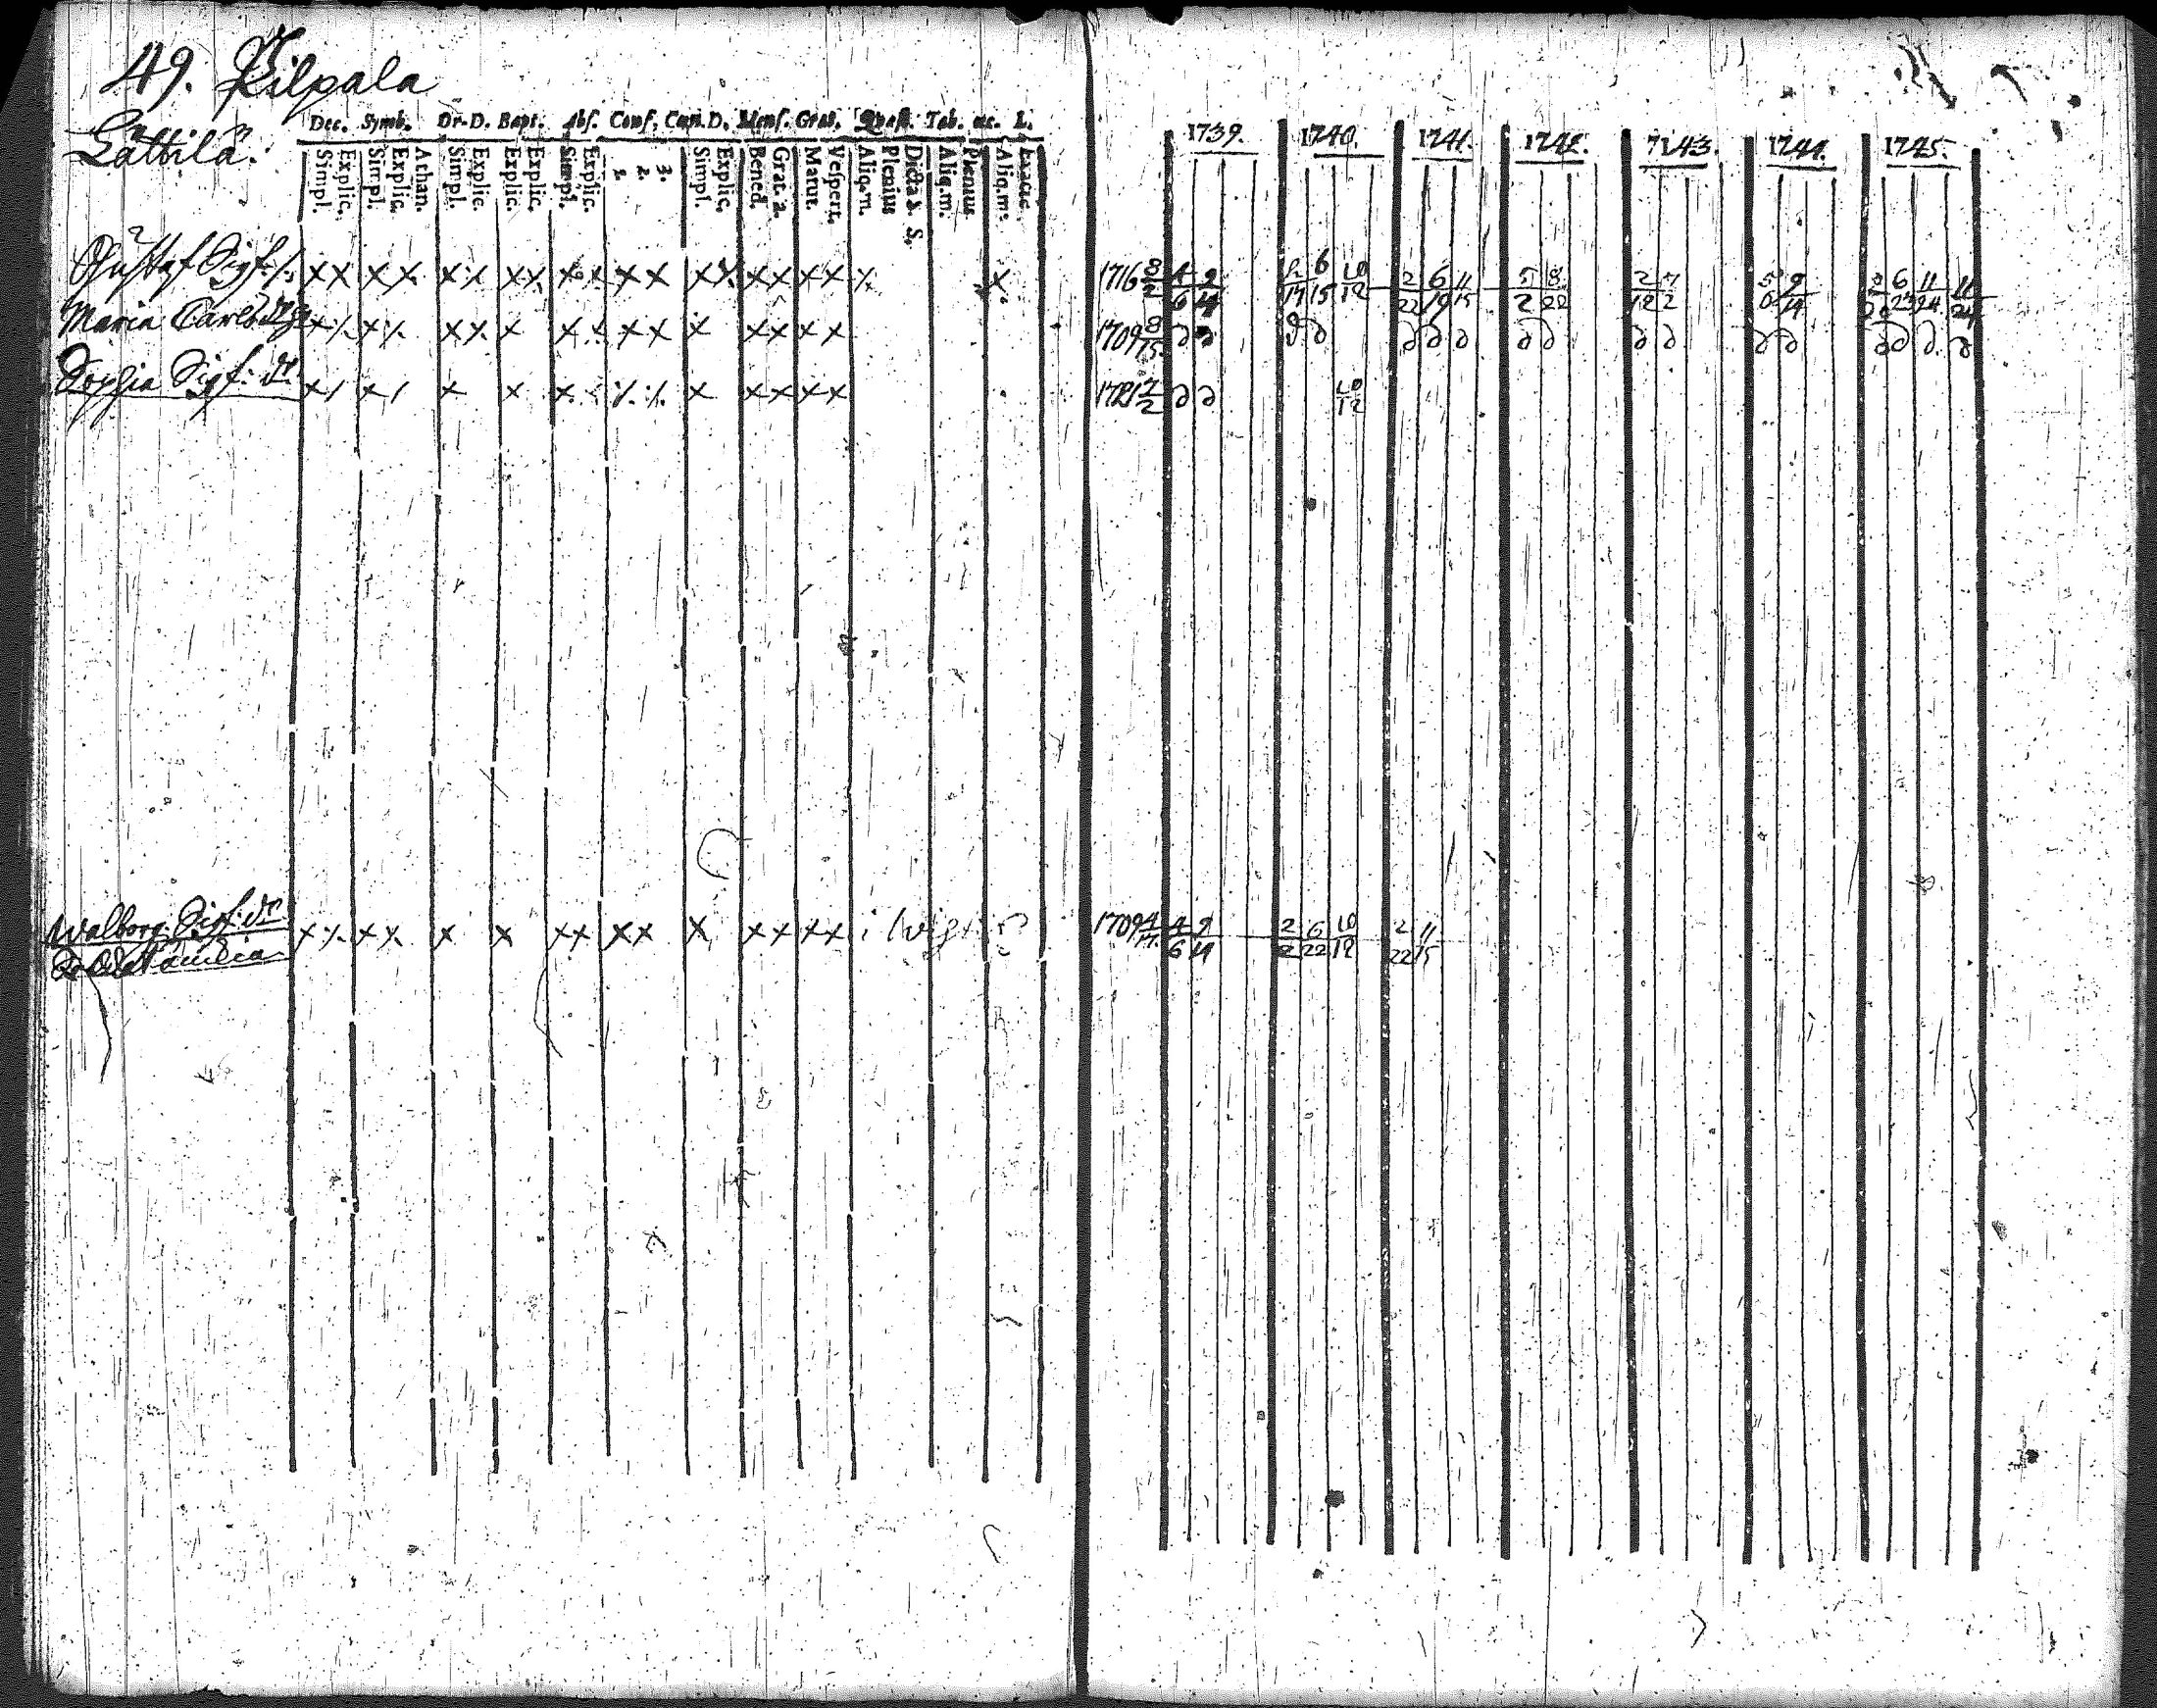 49. Kilpala
Lättilä.
Dec. Symb. Or. D. Bapt. Abs. Conf. Cœn. D. Mens. Grat. Quæst. Tab. œc. L.
Simpl. Explic. Simpl. Explic. Athan. Simpl. Explic. Explic. Explic. Simpl. Explic. 1. 2. 3. Simpl. Explic. Bened. Grat. a. Matut. Vespert. Aliq. m. Plenius Dicta S. S. Aliq. m. Plenius Aliq. m. Exacte.
1739. 1740. 1741. 1742. 1743. 1744. 1745.
Gustaf Sigf: x x x x x x x x x x x x x x x x x 1716 8/2 4/6 9/4 6/15 10/12 2/22 6/19 11/15 5/2 8/22 2/12 7/2
Maria Carls dr x x x x x x x x x x x x x 1709 8/15 d d d d d d d d d d d d d d d d d
Sophia Sigf: dr x / x / x x x x x x x x 1721 7/2 d d 10/12
Walborg Sigf: dr x x x x x x x x x x x x x x x 1709 4/17 4/6 9/4 2/2 6/22 10/12 2/22 11/15